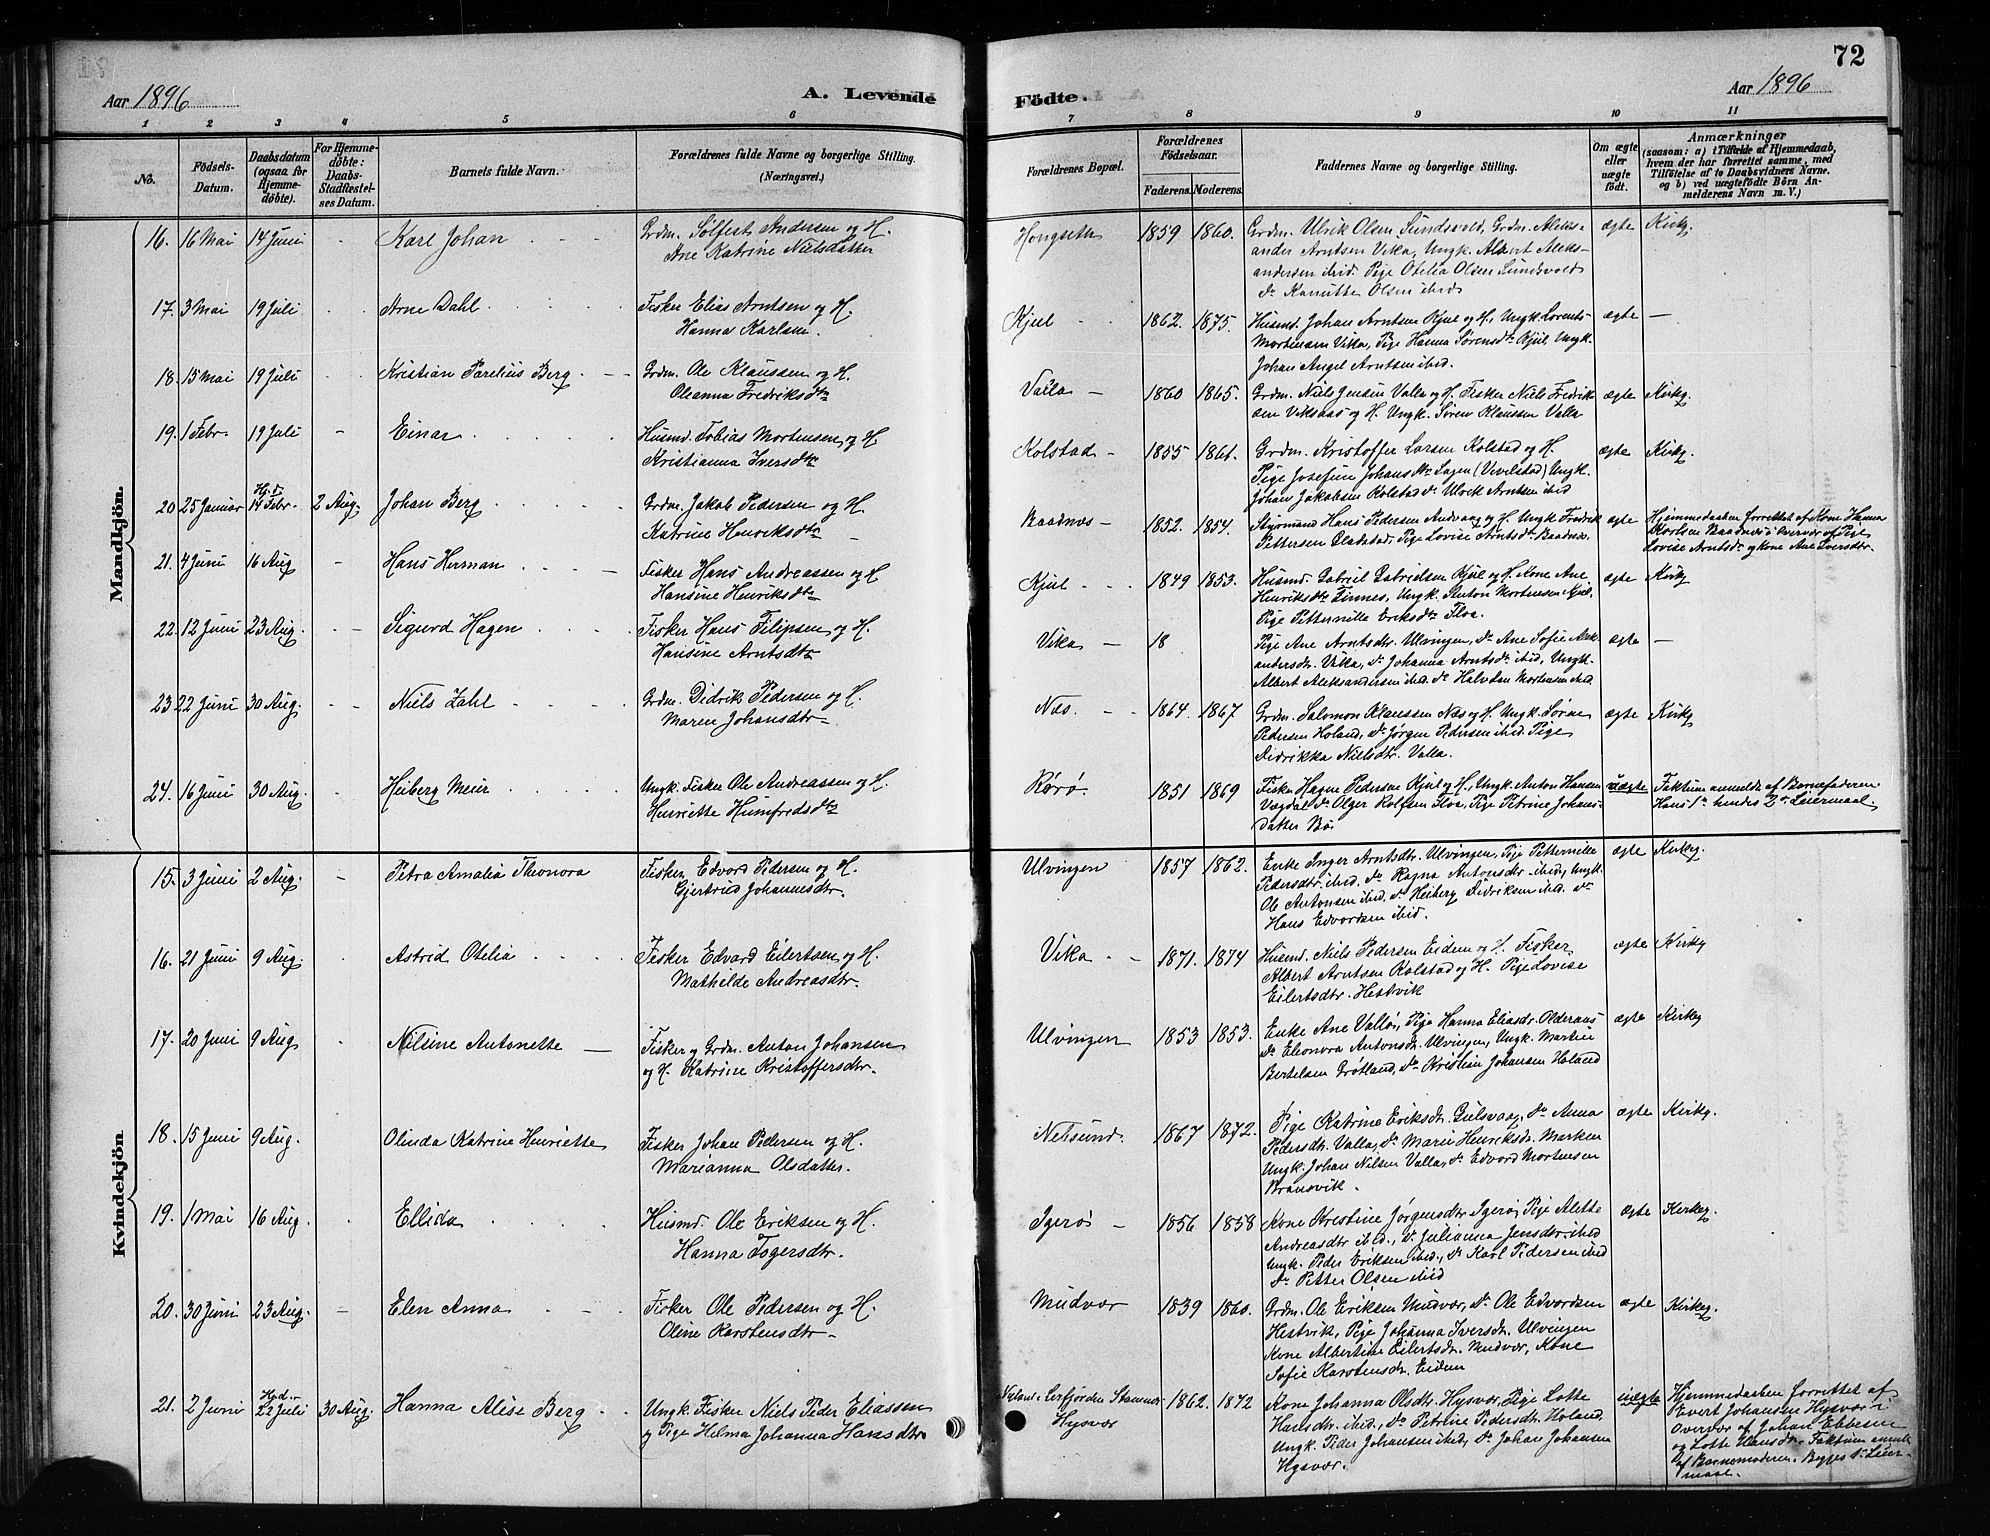 72
Aar 1896
A. Levende
Födte.
Aar 1896
1 2 3 4 5 6 7 8 9 10 11
No.
Födsels-
Datum.
Daabsdatum
(ogsaa for
Hjemme-
döbte).
For Hjemme-
döbte:
Daabs-
Stadfæstel-
ses Datum.
Barnets fulde Navn.
Forældrenes fulde Navne og borgerlige Stilling.
(Næringsvei.)
Forældrenes Bopæl.
Forældrenes
Födselsaar.
Faderens. Moderens.
Faddernes Navne og borgerlige Stilling.
Om ægte
eller
uægte
födt.
Anmærkninger
(saasom: a) i Tilfælde af Hjemmedaab,
hvem der har forrettet samme, med
Tilföielse af to Daabsvidners Navne.
og b) ved uægtefödte Börn An-
melderens Navn m. V.)
Mandkjön.
16. 16 Mai 14 Juni Karl Johan Grdm. Sølfest Andersen og H.
Ane Katrine Nielsdatter
Hongseth 1859 1860. Grdm. Ulrik Olsen Sundsvold, Grdm. Aleks-
ander Arntsen Vika, Ungk. Albert Aleks-
andersen ibid. Pige Otelia Olsen Sundsvold
do Kanutte Olsen ibid
ægte Kirkg.
17. 3 Mai 19 Juli Arne Dahl Fisker Elias Arntsen og H.
Hanna Karlsen.
Kjul 1862. 1875. Husmd. Johan Arntsen Kjul og H., Ungk. Lorents
Mortensen Vika, Pige Hanna Sørensdtr Kjul, Ungk.
Johan Angel Arntsen ibid.
ægte —
18. 15 Mai 19 Juli Kristian Parelius Berg Grdm. Ole Klaussen og H.
Oleanna Fredriksdtr
Valla 1860 1865. Grdm. Niels Jensen Valla og H. Fisker Niels Fredrik
sen Viksaas og H. Ungk. Søren Klaussen Valla
ægte Kirkg.
19. 1 Febr. 19 Juli Einar Husmd. Tobias Mortensen og H
Kristianna Iversdtr
Kolstad 1855 1861. Grdm. Kristoffer Larsen Kolstad og H.
Pige Josefine Johansdtr Sagen (Vevelstad) Ungk.
Johan Jakobsen Kolstad do Ulrik Arntsen ibid
ægte Kirkg.
20 25 Januar Hj.d. 14 Febr. 2 Aug. Johan Berg Grdm. Jakob Pedersen og H.
Katrine Henriksdtr
Baadnæs 1852. 1854. Styrmand Hans Pedersen Andvaag og H. Ungk Fredrik
Pettersen Gladstad, Pige Lovise Arntsdtr Baadnæs.
ægte Hjemmedaaben forrettet af Kone Hanna
Karlsen Baadnæs i Overvær af Pige
Lovise Arntsdtr og Kone Ane Iversdtr.
21. 4 Juni 16 Aug Hans Herman Fisker Hans Andreassen og H
Hansine Henriksdtr
Kjul 1849 1853. Husmd. Gabriel Gabrielsen Kjul og H. Kone Ane
Henriksdtr Finnes, Ungk. Anton Mortensen Kjul,
Pige Petternille Eriksdtr Floa.
ægte Kirkg
22. 12 Juni 23 Aug. Sigurd Hagen Fisker Hans Filipsen og H.
Hansine Arntsdtr
Vika 18 Pige Ane Arntsdtr. Ulvingen, do Ane Sofie Aleks-
andersdtr. Vika, do Johanna Arntsdtr ibid, Ungk.
Albert Aleksandersen ibid. do Halvtan Mortensen ibid
ægte —
23 22 Juni 30 Aug. Niels Zahl Grdm. Didrik Pedersen og H.
Maren Johansdtr
Næs. 1864. 1867 Grdm. Salomon Klaussen Næs og H. Ungk. Sørne
Pedersen Holand, do Jørgen Pedersen ibid. Pige
Didrikka Nielsdtr. Valla.
ægte Kirkg
24. 16 Juni 30 Aug. Heiberg Meier Ungk. Fisker Ole Andreassen og H.
Henriette Humfredsdtr
Rørø. 1851 1869 Fisker Hagen Pedersen Kjul og H., Ungk. Anton Hansen
Vægdal do Olger Rolfsen Floa, Pige Petrine Johans-
datter Bø.
uægte Faktum anmeldt af Barnefaderen
Hans 1ste hendes 2det Leiermaal.
Kvindekjön
15. 3 Juni 2 Aug. Petra Amalia Theonora Fisker Edvard Pedersen og H.
Gjertrud Johannesdtr.
Ulvingen 1857 1862. Enke Inger Arntsdtr. Ulvingen, Pige Petternille
Pedersdtr. ibid. do Ragna Antonsdtr ibid, Ungk.
Ole Antonsen ibid. do Heiberg Didriksen ibid. do
Hans Edvardsen ibid.
ægte Kirkg.
16. 21 Juni 9 Aug. Astrid Otelia Fisker Edvard Eilertsen og H.
Mathilde Andreasdtr.
Vika 1871. 1874 Husmd. Niels Pedersen Eidem og H. Fisker
Albert Arntsen Kolstad og H. Pige Lovise
Eilertsdtr. Hestvik
ægte Kirkg
17. 20 Juni 9 Aug Nilsine Antonette Fisker og Grdm. Anton Johansen
og H. Katrine Kristoffersdtr.
Ulvingen 1853 1853. Enke Ane Vallø, Pige Hanna Eliasdtr. Olderaas
do Eleonora Antonsdtr. Ulvingen, Ungk. Martin
Bertelsen Grøtland, do Kristian Johansen Holand
ægte Kirkg
18. 15 Juni 9 Aug. Olinda Katrine Henriette Fisker Johan Pedersen og H.
Marianna Olsdatter.
Nelsund. 1867 1872. Pige Katrine Eriksdtr. Gulsvaag, do Anna
Pedersdtr. Valla, do Marie Henriksdtr. Marken
Ungk. Johan Nilsen Valla, do Edvard Mortensen
Brandsvik.
ægte Kirkg.
19. 1 Mai 16 Aug. Ellida Husmd. Ole Eriksen og H.
Hanna Togersdtr.
Igerø 1856 1858 Kone Kristine Jørgensdtr Igerø, Pige Alette
Andreasdtr ibid., do Julianna Jensdtr. ibid
Ungk. Peder Eriksen ibid., do Karl Pedersen ibid
do Petter Olsen ibid
ægte Kirkg.
20. 30 Juni 23 Aug. Elen Anna Fisker Ole Pedersen og H.
Oline Karstensdtr
Mudvær 1839 1860. Grdm. Ole Eriksen Mudvær, do Ole Edvardsen
Hestvik, Pige Johanna Iversdtr. Ulvingen
Kone Albertine Eilertsdtr. Mudvær, Kone
Sofie Karstensdtr. Eidem
ægte Kirkg.
21. 2 Juni Hj.d. 22 Juli 30 Aug. Hanna Alise Berg Ungk Fisker Niels Peder Eliassen
og Pige Helma Johanna Hansdtr
Hysvær 1862. 1872 Kone Johanna Olsdtr. Hysvær, Pige Lotte
Hansdtr. ibid., do Petrine Pedersdtr. Holand.
Ungk. Peder Johansen ibid, do Johan Johansen
Hysvær.
uægte Hjemmedaaben forrettet af
Evert Johansen Hysvær i
Overvær af Johan Ebbesen
og Lotte Hansdtr. Faktum anmeldt
af Barnemoderen. Begges 1ste Leier-
maal.